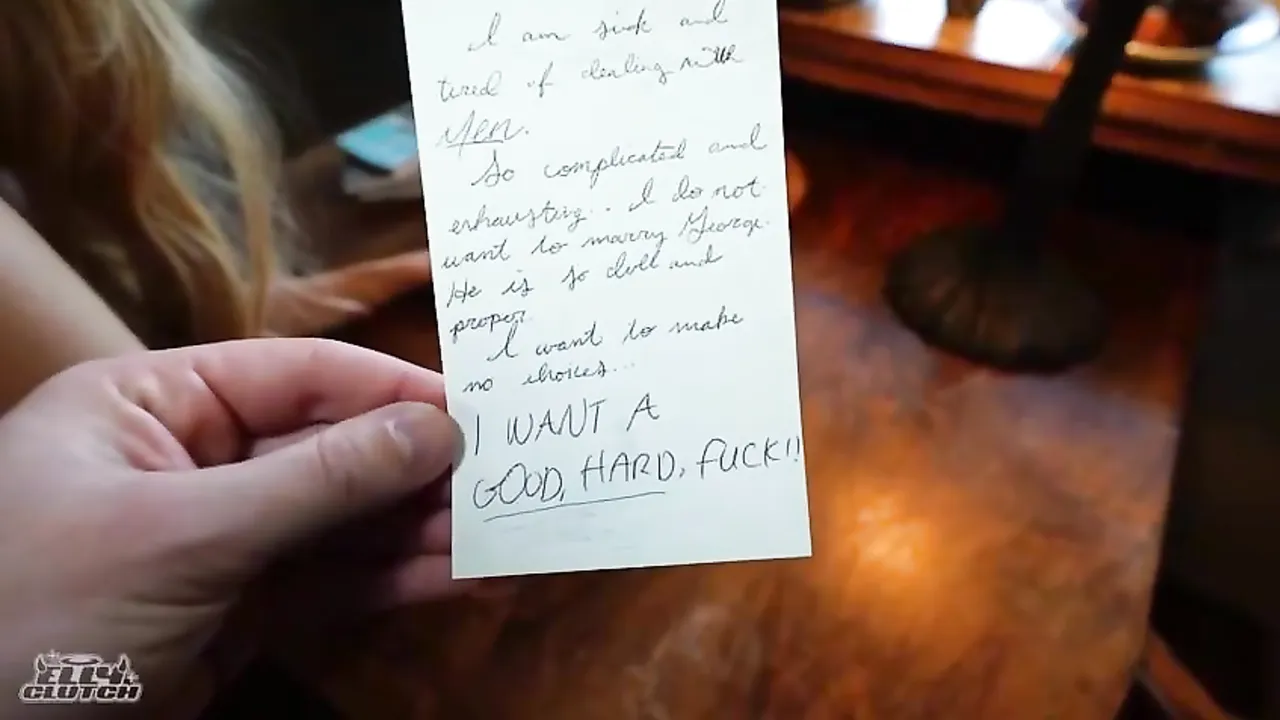 I am sick and
tired of dealing with
Men.
So complicated and
exhausting.. I do not
want to marry George.
He is so dull and
proper.
I want to make
no choices...
I WANT A
GOOD, HARD, FUCK!!
ELLY
CLUTCH